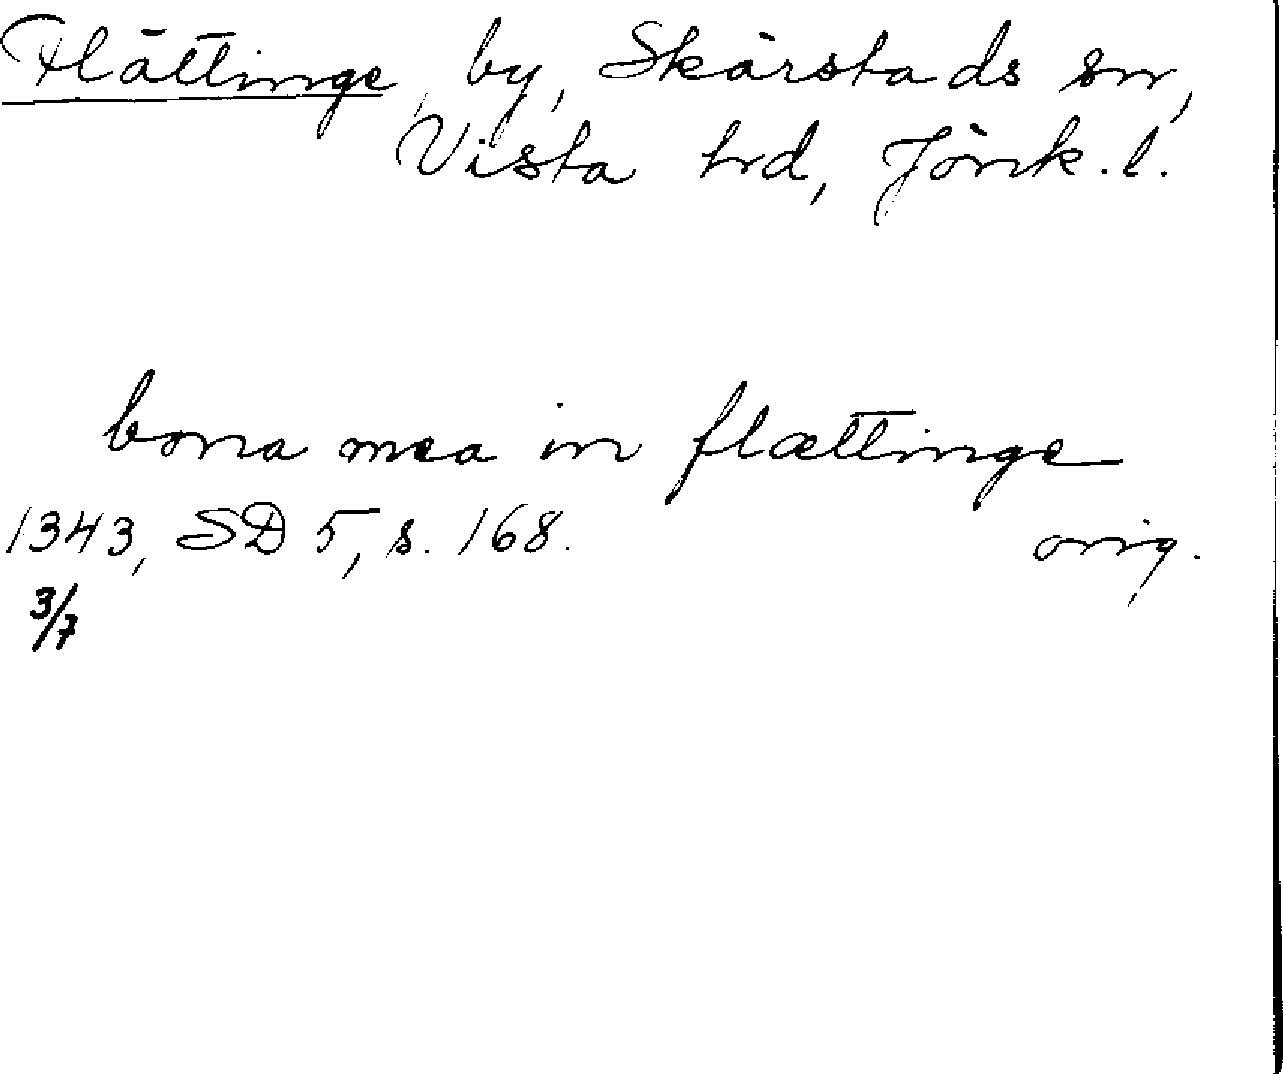 Flättinge, by, Skärstads sn,
Vista hrd, Jönk. l.
bona mea in flættinge
1343, SD 5, s. 168. orig.
3/7